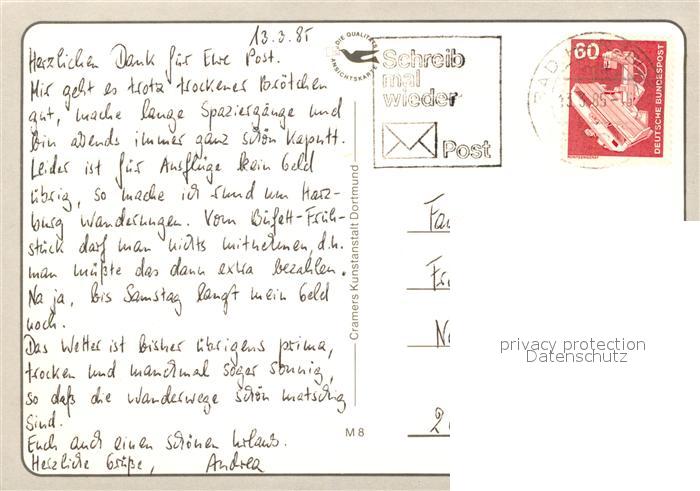 13.3.85
Herzlichen Dank für Eure Post.
Mir geht es trotz trockener Brötchen
gut, mache lange Spaziergänge und
bin abends immer ganz schön kaputt.
Leider ist für Ausflüge kein Geld
übrig, so mache ich rund um Harz-
burg Wanderungen. Vom Büfett-Früh-
stück darf man nichts mitnehmen, d.h.
man müßte das dann extra bezahlen.
Na ja, bis Samstag langt mein Geld
noch.
Das Wetter ist bisher übrigens prima,
trocken und manchmal sogar sonnig,
so daß die Wanderwege schön matschig
sind.
Euch auch einen schönen Urlaub.
Herzliche Grüße, Andrea
DIE QUALITÄTS
ANSICHTSKARTE
Cramers Kunstanstalt Dortmund
M 8
Schreib
mal
wieder
Post
BAD
60
DEUTSCHE BUNDESPOST
RÖNTGENGERÄT
privacy protection
Datenschutz